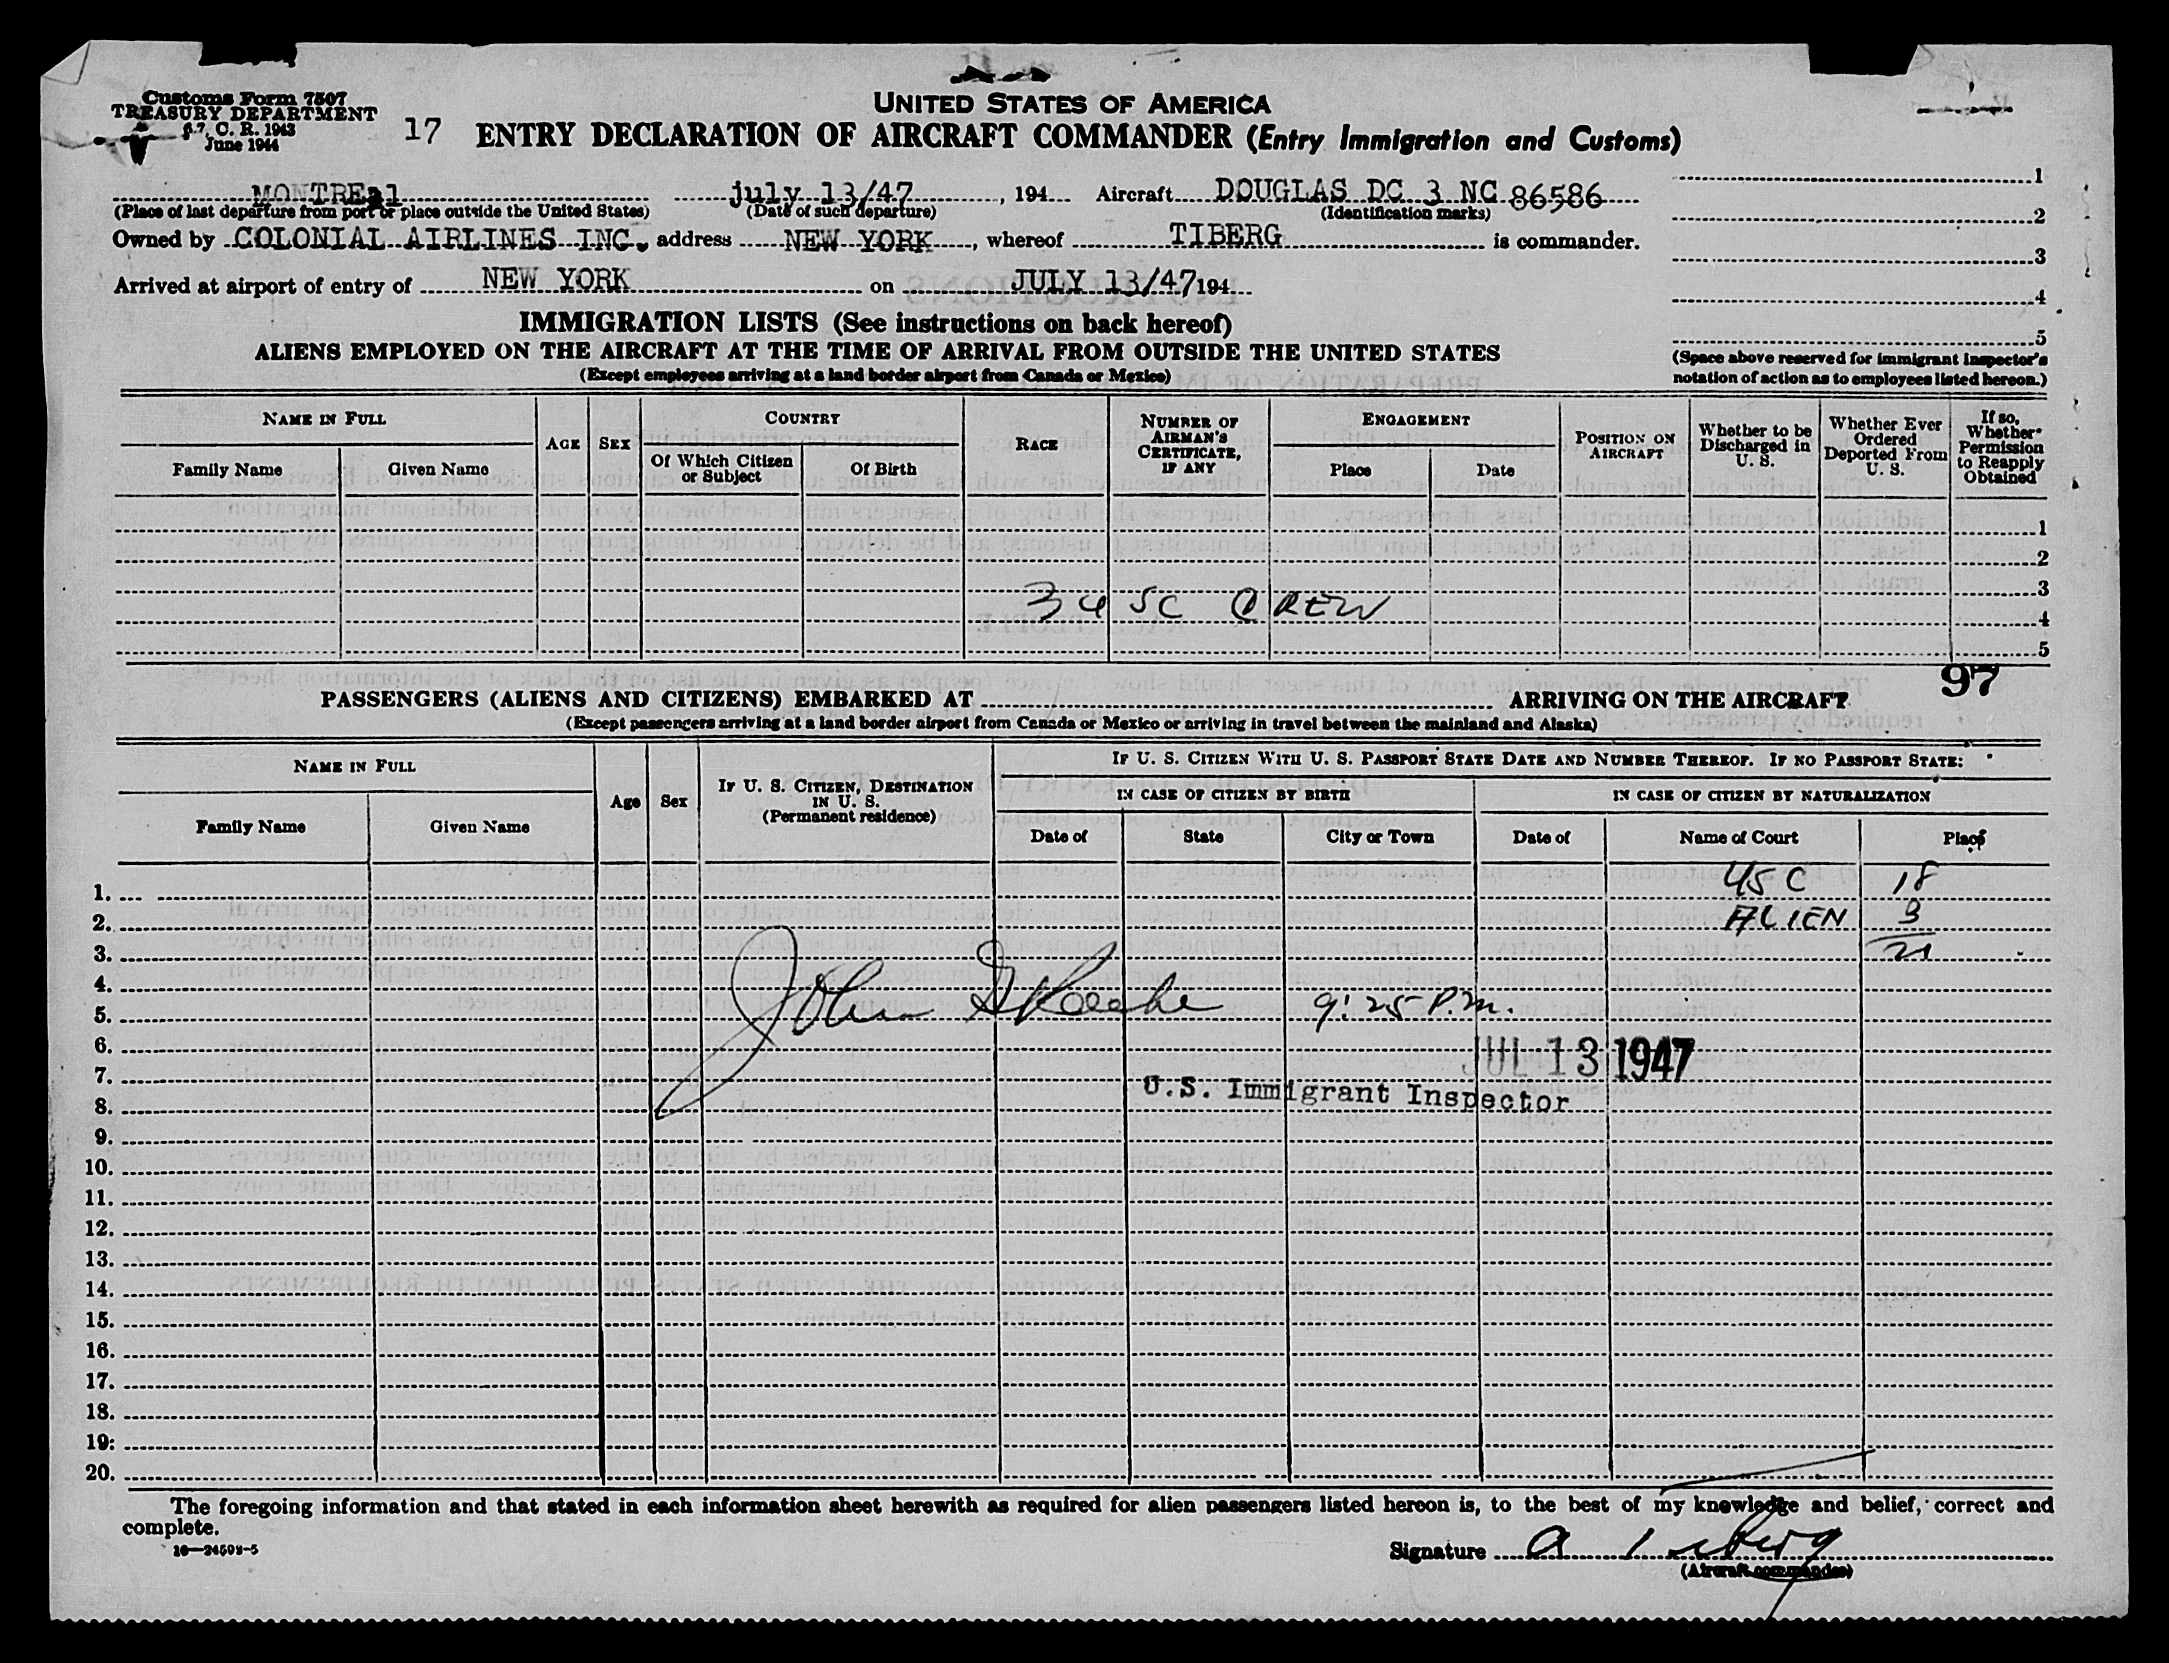 Customs Form 7507
TREASURY DEPARTMENT
6.7, C. R. 1943
June 1944
17
UNITED STATES OF AMERICA
ENTRY DECLARATION OF AIRCRAFT COMMANDER (Entry Immigration and Customs)
MONTREal july 13/47, 194 Aircraft DOUGLAS DC 3 NC 86586
(Place of last departure from port or place outside the United States) (Date of such departure) (Identification marks)
Owned by COLONIAL AIRLINES INC. address NEW YORK, whereof TIBERG is commander.
Arrived at airport of entry of NEW YORK on JULY 13/47 194
1
2
3
4
5
(Space above reserved for immigrant inspector's
notation of action as to employees listed hereon.)
IMMIGRATION LISTS (See instructions on back hereof)
ALIENS EMPLOYED ON THE AIRCRAFT AT THE TIME OF ARRIVAL FROM OUTSIDE THE UNITED STATES
(Except employees arriving at a land border airport from Canada or Mexico)
NAME IN FULL
Family Name
Given Name
AGE
SEX
COUNTRY
Of Which Citizen
or Subject
Of Birth
RACE
NUMBER OF
AIRMAN'S
CERTIFICATE,
IF ANY
ENGAGEMENT
Place
Date
POSITION ON
AIRCRAFT
Whether to be
Discharged in
U. S.
Whether Ever
Ordered
Deported From
U. S.
If so,
Whether
Permission
to Reapply
Obtained
1
2
3
3 U SC CREW
4
5
97
PASSENGERS (ALIENS AND CITIZENS) EMBARKED AT ARRIVING ON THE AIRCRAFT
(Except passengers arriving at a land border airport from Canada or Mexico or arriving in travel between the mainland and Alaska)
NAME IN FULL
Family Name
Given Name
Age
Sex
IF U. S. CITIZEN, DESTINATION
IN U. S.
(Permanent residence)
IF U. S. CITIZEN WITH U. S. PASSPORT STATE DATE AND NUMBER THEREOF. IF NO PASSPORT STATE:
IN CASE OF CITIZEN BY BIRTH
Date of
State
City or Town
IN CASE OF CITIZEN BY NATURALIZATION
Date of
Name of Court
Place
1. USC 18
2. ALIEN 3
3. 21
4.
John 9:25 P.m.
5.
6. JUL 13 1947
7.
U.S. Immigrant Inspector
8.
9.
10.
11.
12.
13.
14.
15.
16.
17.
18.
19.
20.
The foregoing information and that stated in each information sheet herewith as required for alien passengers listed hereon is, to the best of my knowledge and belief, correct and
complete.
Signature A Tiberg
(Aircraft commander)